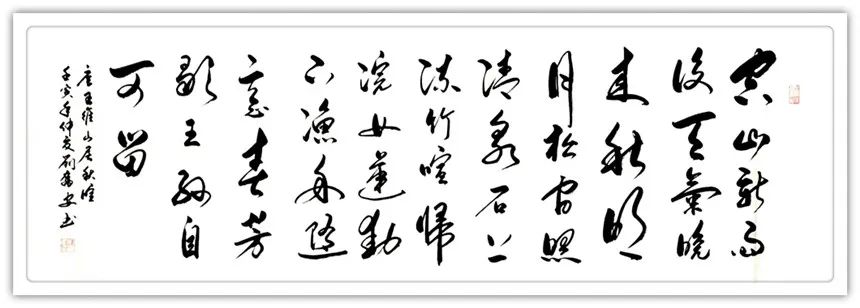 空山新雨
後天氣晚
来秋明
月松間照
清泉石上
流竹喧歸
浣女蓮動
下漁舟隨
意春芳
歇王孫自
可留
唐王維山居秋暝
壬寅年仲夏刘安书